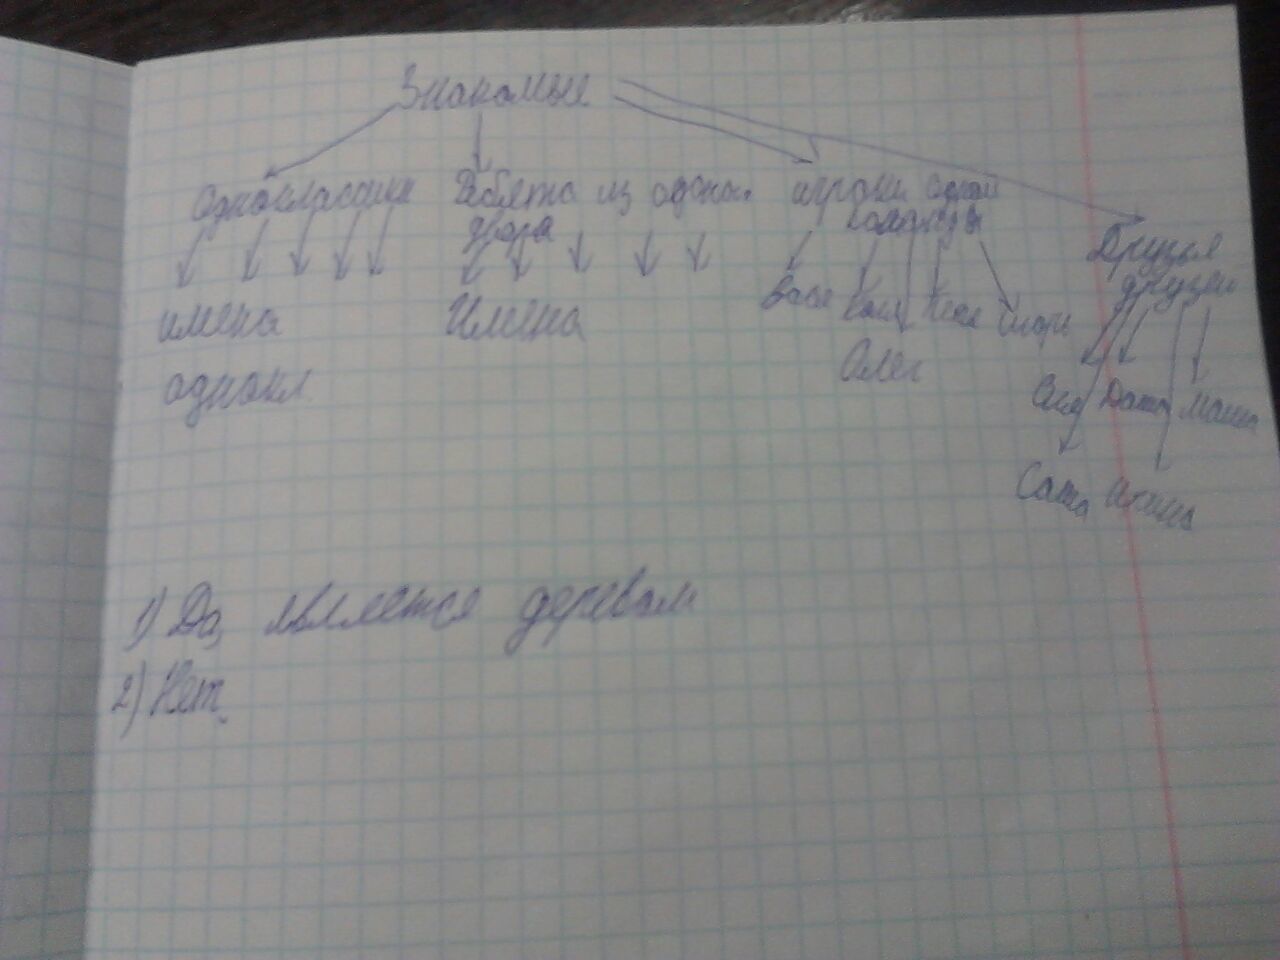 Знакомые
одноклассники Ребята из одного двора игроки одной команды Друзья друзей
имена однокл.
Имена
Вася Коля Олег Игорь
Даша Маша
Саша
1) Да, является деревом
2) Нет.